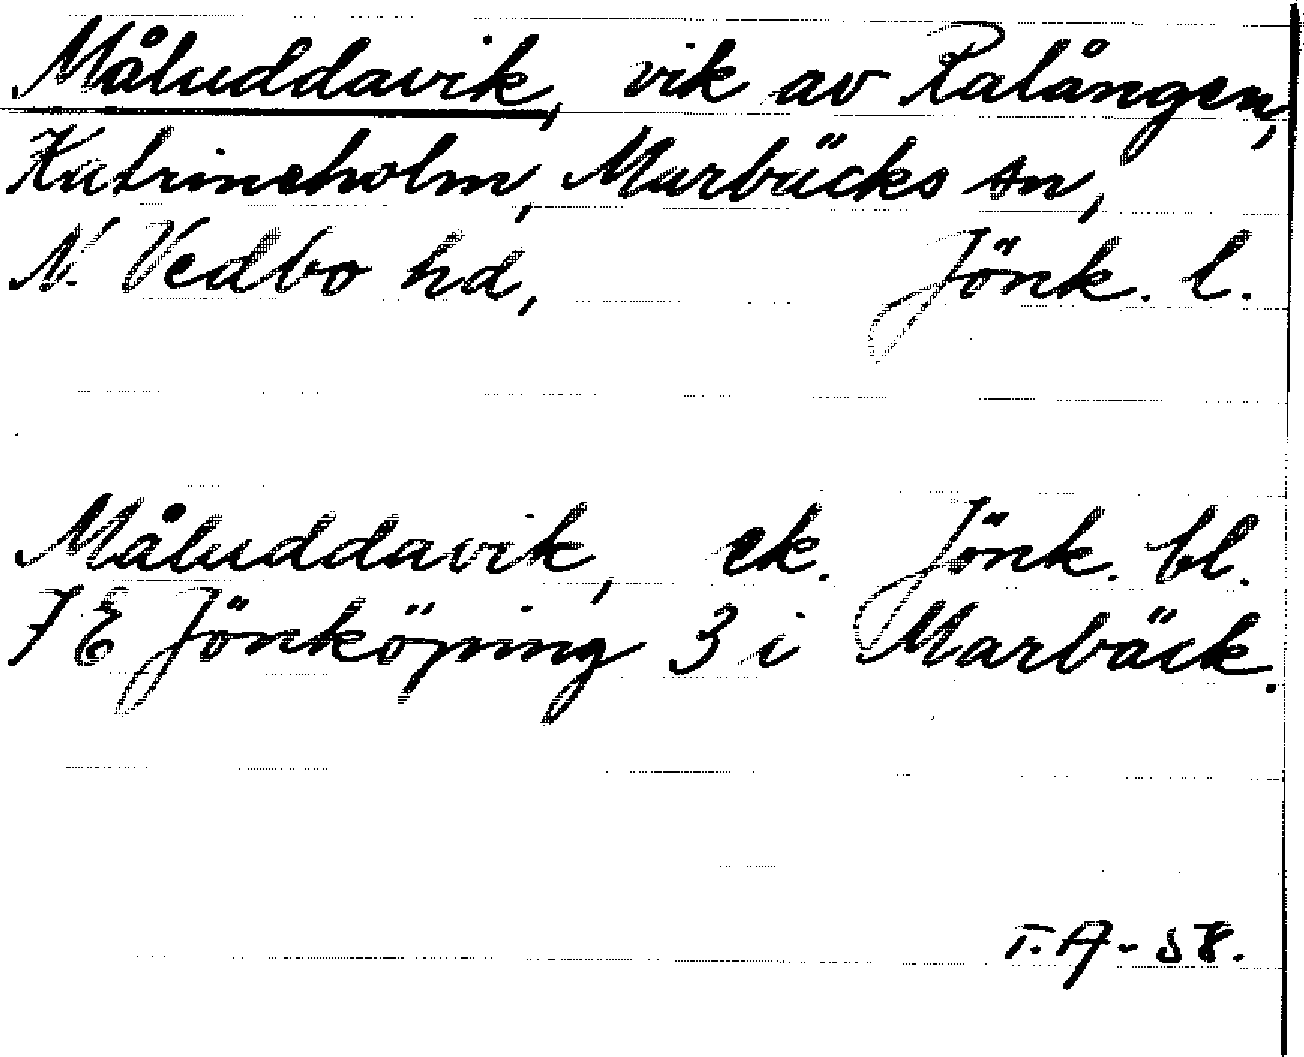 Måluddavik, vik av Ralången,
Katrineholm, Marbäcks sn,
N. Vedbo hd, Jönk. l.
Måluddavik, ek. Jönk. bl.
7E Jönköping 3 i Marbäck.
T.A-58.